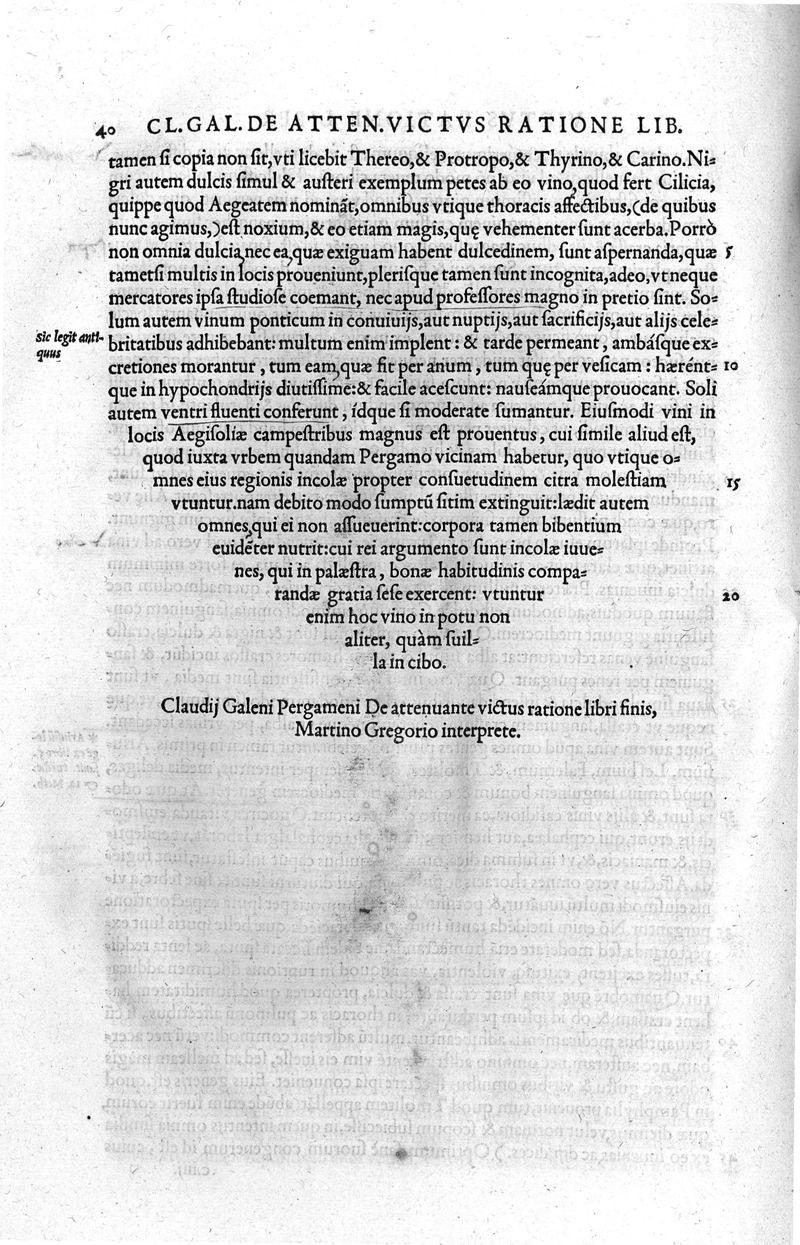 40 CL. GAL. DE ATTEN. VICTVS RATIONE LIB.
tamen ſi copia non ſit, vti licebit Thereo, & Protropo, & Thyrino, & Carino. Ni⸗
gri autem dulcis ſimul & auſteri exemplum petes ab eo vino, quod fert Cilicia,
quippe quod Aegeatem nominãt, omnibus vtique thoracis affectibus, (de quibus
nunc agimus,) eſt noxium, & eo etiam magis, quę vehementer ſunt acerba. Porrò
non omnia dulcia, nec ea, quæ exiguam habent dulcedinem, ſunt aſpernanda, quæ 5
tametſi multis in locis proueniunt, pleriſque tamen ſunt incognita, adeo, vt neque
mercatores ipſa ſtudioſe coemant, nec apud profeſſores magno in pretio ſint. So⸗
lum autem vinum ponticum in conuiuijs, aut nuptijs, aut ſacrificijs, aut alijs cele⸗
sic legit anti-
quus
britatibus adhibebant: multum enim implent: & tarde permeant, ambáſque ex⸗
cretiones morantur, tum eam, quæ fit per anum, tum quę per veſicam: hærént⸗ 10
que in hypochondrijs diutiſſime: & facile aceſcunt: nauſeámque prouocant. Soli
autem ventri fluenti conferunt, ídque ſi moderate ſumantur. Eiuſmodi vini in
locis Aegiſoliæ campeſtribus magnus eſt prouentus, cui ſimile aliud eſt,
quod iuxta vrbem quandam Pergamo vicinam habetur, quo vtique o⸗
mnes eius regionis incolæ propter conſuetudinem citra moleſtiam 15
vtuntur. nam debito modo ſumptũ ſitim extinguit: lædit autem
omnes, qui ei non aſſueuerint: corpora tamen bibentium
euidẽter nutrit: cui rei argumento ſunt incolæ iuue⸗
nes, qui in palæſtra, bonæ habitudinis compa⸗
randæ gratia ſeſe exercent: vtuntur 20
enim hoc vino in potu non
aliter, quàm ſuil⸗
la in cibo.
Claudij Galeni Pergameni De attenuante victus ratione libri finis,
Martino Gregorio interprete.